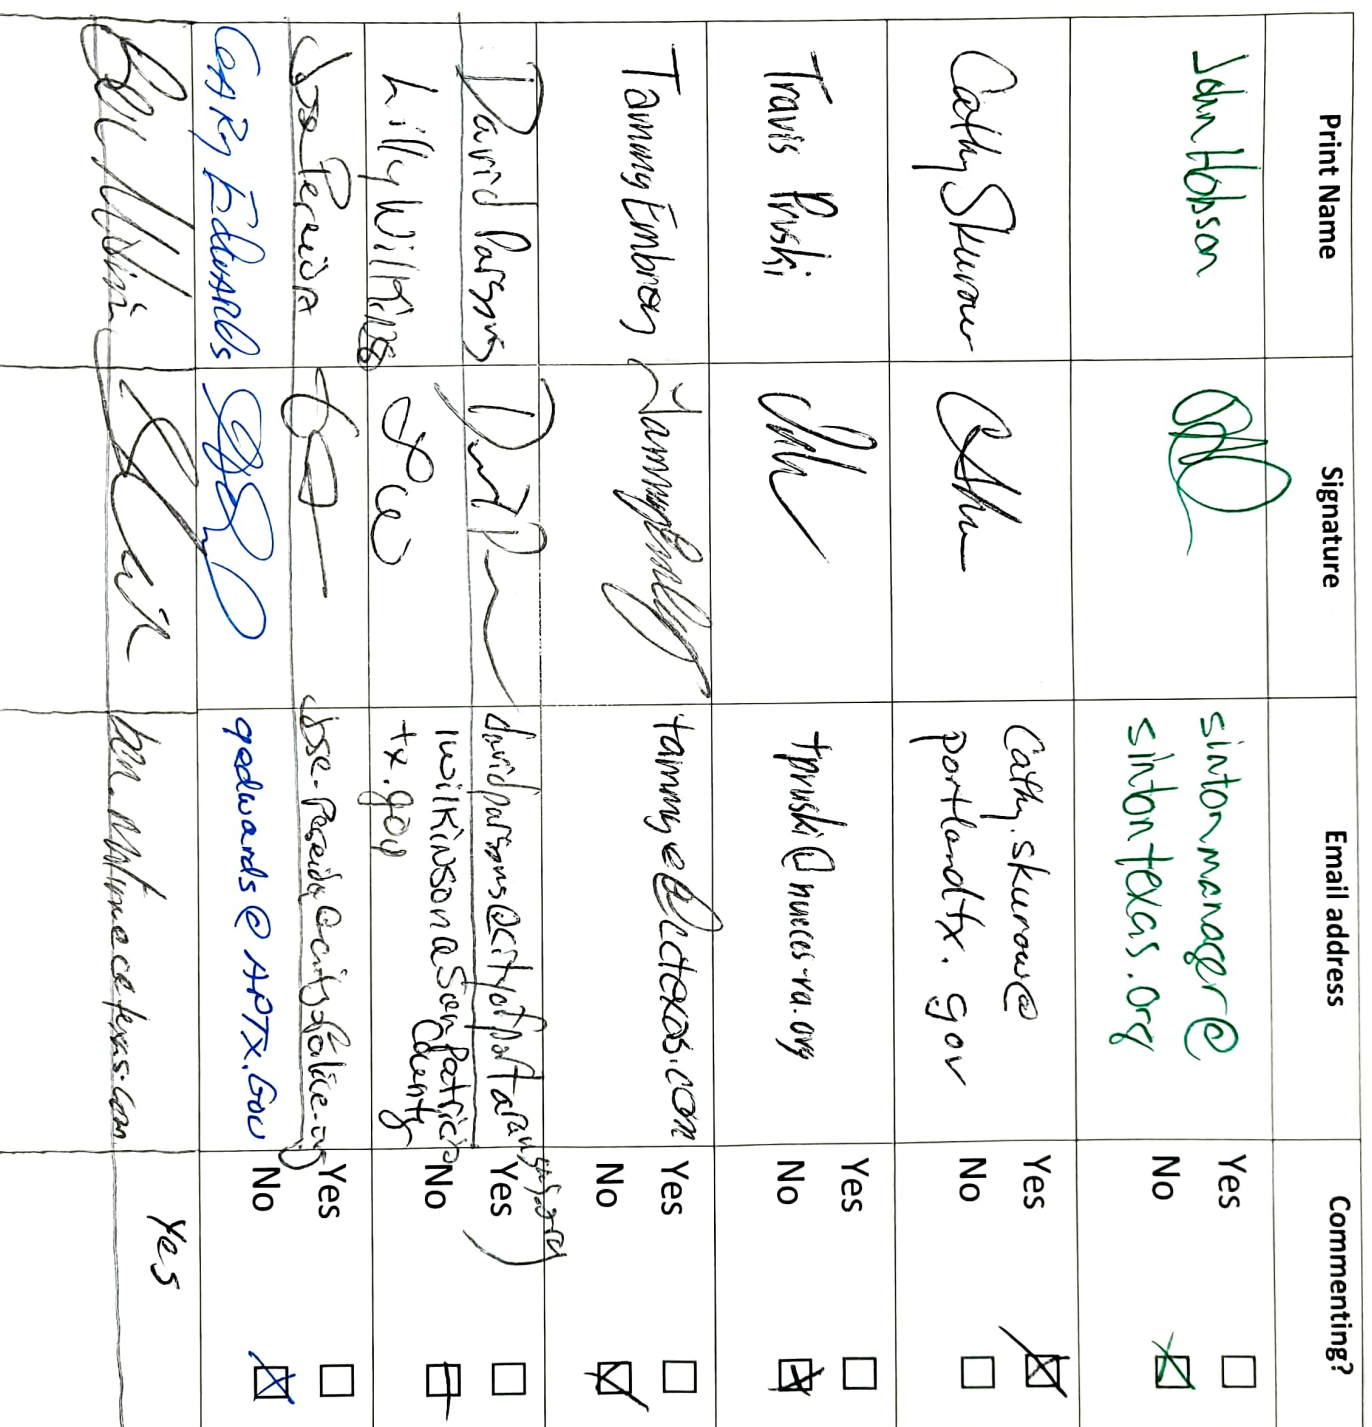 Print Name
Signature
Email address
Commenting?
John Hobson
sintonmanager@
sintontexas.org
Yes
No
Cathy Skurow
Cathy.skurow@
portlandtx.gov
Yes
No
Travis Pruski
tpruski@nueces-ra.org
Yes
No
Tammy Embrey
tammye@cctexas.com
Yes
No
David Parsons
davidparsons@cityofportaransas.org
Yes
Lilly Wilkinson
lwilkinson@SanPatricio
County
tx.gov
No
Jose Pereida
Jose.Pereida@cityofalice.org
Yes
GARy EdwARds
gedwards@APTX.Gov
No
Ben
Yes